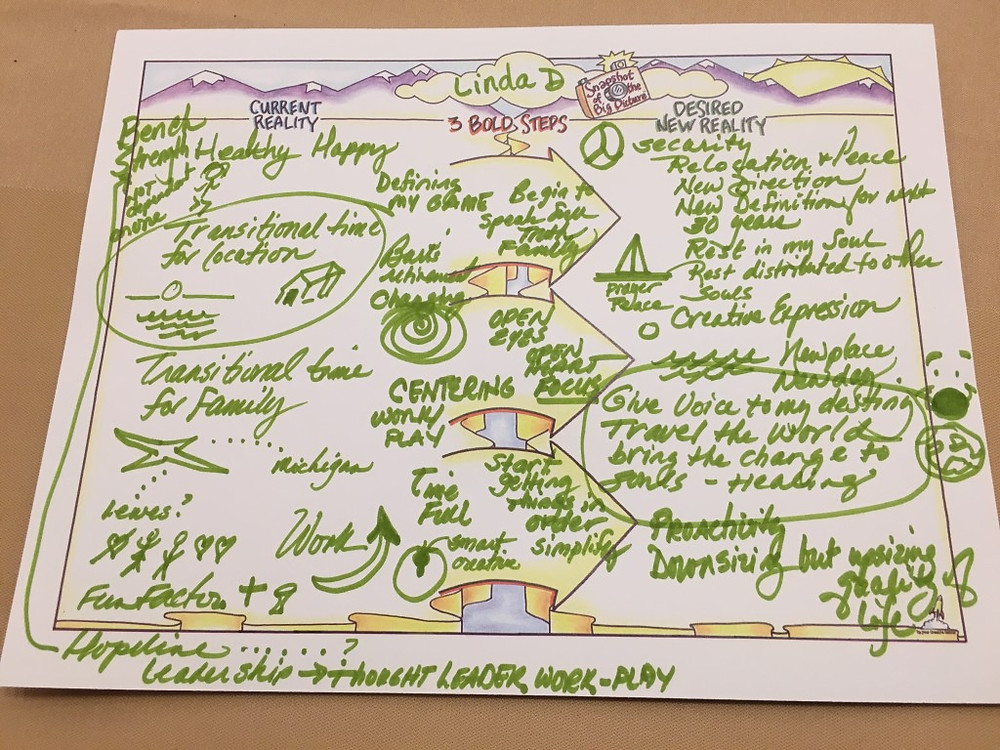 Linda D
Snapshot
of the
Big Picture
CURRENT
REALITY
Bench
Strength
not
dependent
phone
Healthy Happy
Transitional time
for location
Transitional time
for Family
michigan
Lewes?
Work
Fun Factor +
Hopeline ......?
Leadership → THOUGHT LEADER WORK-PLAY
3 BOLD STEPS
Defining
MY GAME
retirement
Changing
CENTERING
WORK/
PLAY
Time
Full
smart
creative
Begin to
Speak
Truth
Family
OPEN
EYES
OPEN
HEART
FOCUS
Start
getting
things in
order
Simplify
DESIRED
NEW REALITY
security
Relocation + Peace
New direction
New Definition for next
30 years
Rest in my Soul
Rest distributed to other
Souls
prayer
Peace
Creative Expression
New place
New day
Give Voice to my destiny
Travel the World
bring the change to
souls - Healing
Proactivity
Downsizing but upsizing
quality of
Life